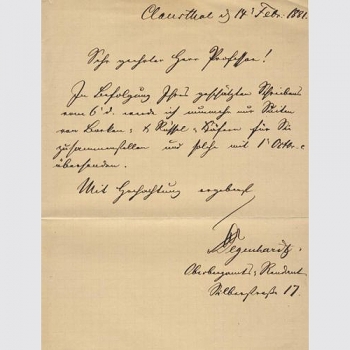 Clausthal d 14ᵗ Febr. 1881.
Sehr geehrter Herr Professor!
In Befolgung Ihres geschätzten Schreibens
vom 6ᵗ d. werde ich nunmehr nur Suiten
von Borken- & Rüssel-Käfern für Sie
zusammenstellen und solche mit 1ᵗ Octbr. c
übersenden.
Mit Hochachtung ergebenst
Degenhardt
Oberbergamts-Rendant
Silberstraße 17.